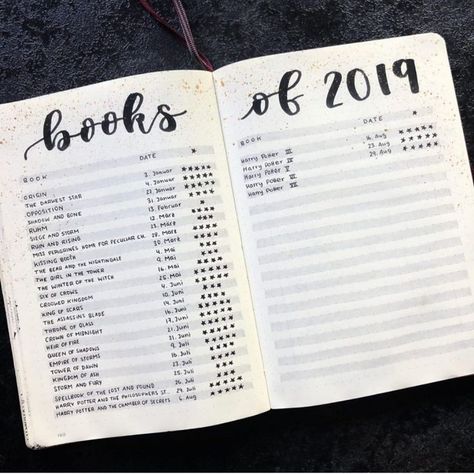 books of 2019
BOOK DATE ★
ORIGIN 2. Januar ★★★★★
THE DARKEST STAR 4. Januar
OPPOSITION 21. Januar
SHADOW AND BONE Januar
RUHM 13. Februar
SIEGE AND STORM März
RUIN AND RISING März
MISS PEREGRINES HOME FOR PECULIAR CH. März
KISSING BOOTH März
THE BEAR AND THE NIGHTINGALE Mai
THE GIRL IN THE TOWER Mai
THE WINTER OF THE WITCH Mai
SIX OF CROWS
CROOKED KINGDOM Juni
KING OF SCARS Juni
THE ASSASSINS BLADE Juni
THRONE OF GLASS Juni
CROWN OF MIDNIGHT Juni
HEIR OF FIRE Juni
QUEEN OF SHADOWS
EMPIRE OF STORMS Juli
TOWER OF DAWN Juli
KINGDOM OF ASH Juli
STORM AND FURY 25. Juli
SPELLBOOK OF THE LOST AND FOUND 26. Juli
HARRY POTTER AND THE PHILOSOPHERS ST. Juli
HARRY POTTER AND THE CHAMBER OF SECRETS 6. Aug
BOOK DATE ★
HARRY POTTER III 16. Aug ★★★★★
HARRY POTTER IV 23. Aug ★★★★★
HARRY POTTER V 29. Aug ★★★★★
HARRY POTTER VI
HARRY POTTER VII